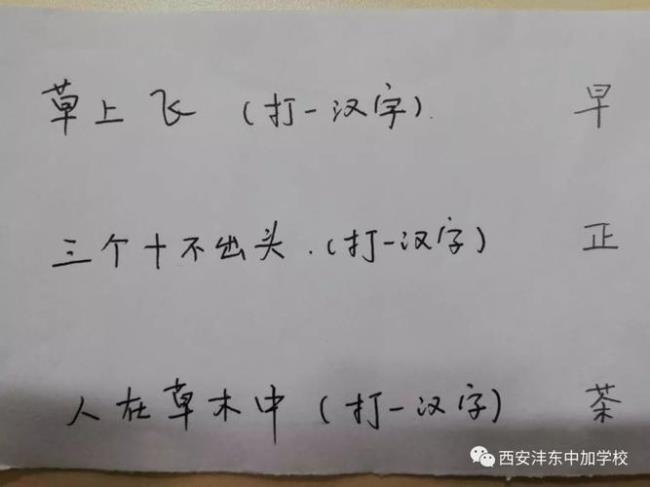 草上飞 (打一汉字). 早
三个十不出头.(打一汉字) 正
人在草木中 (打一汉字) 茶
西安沣东中加学校